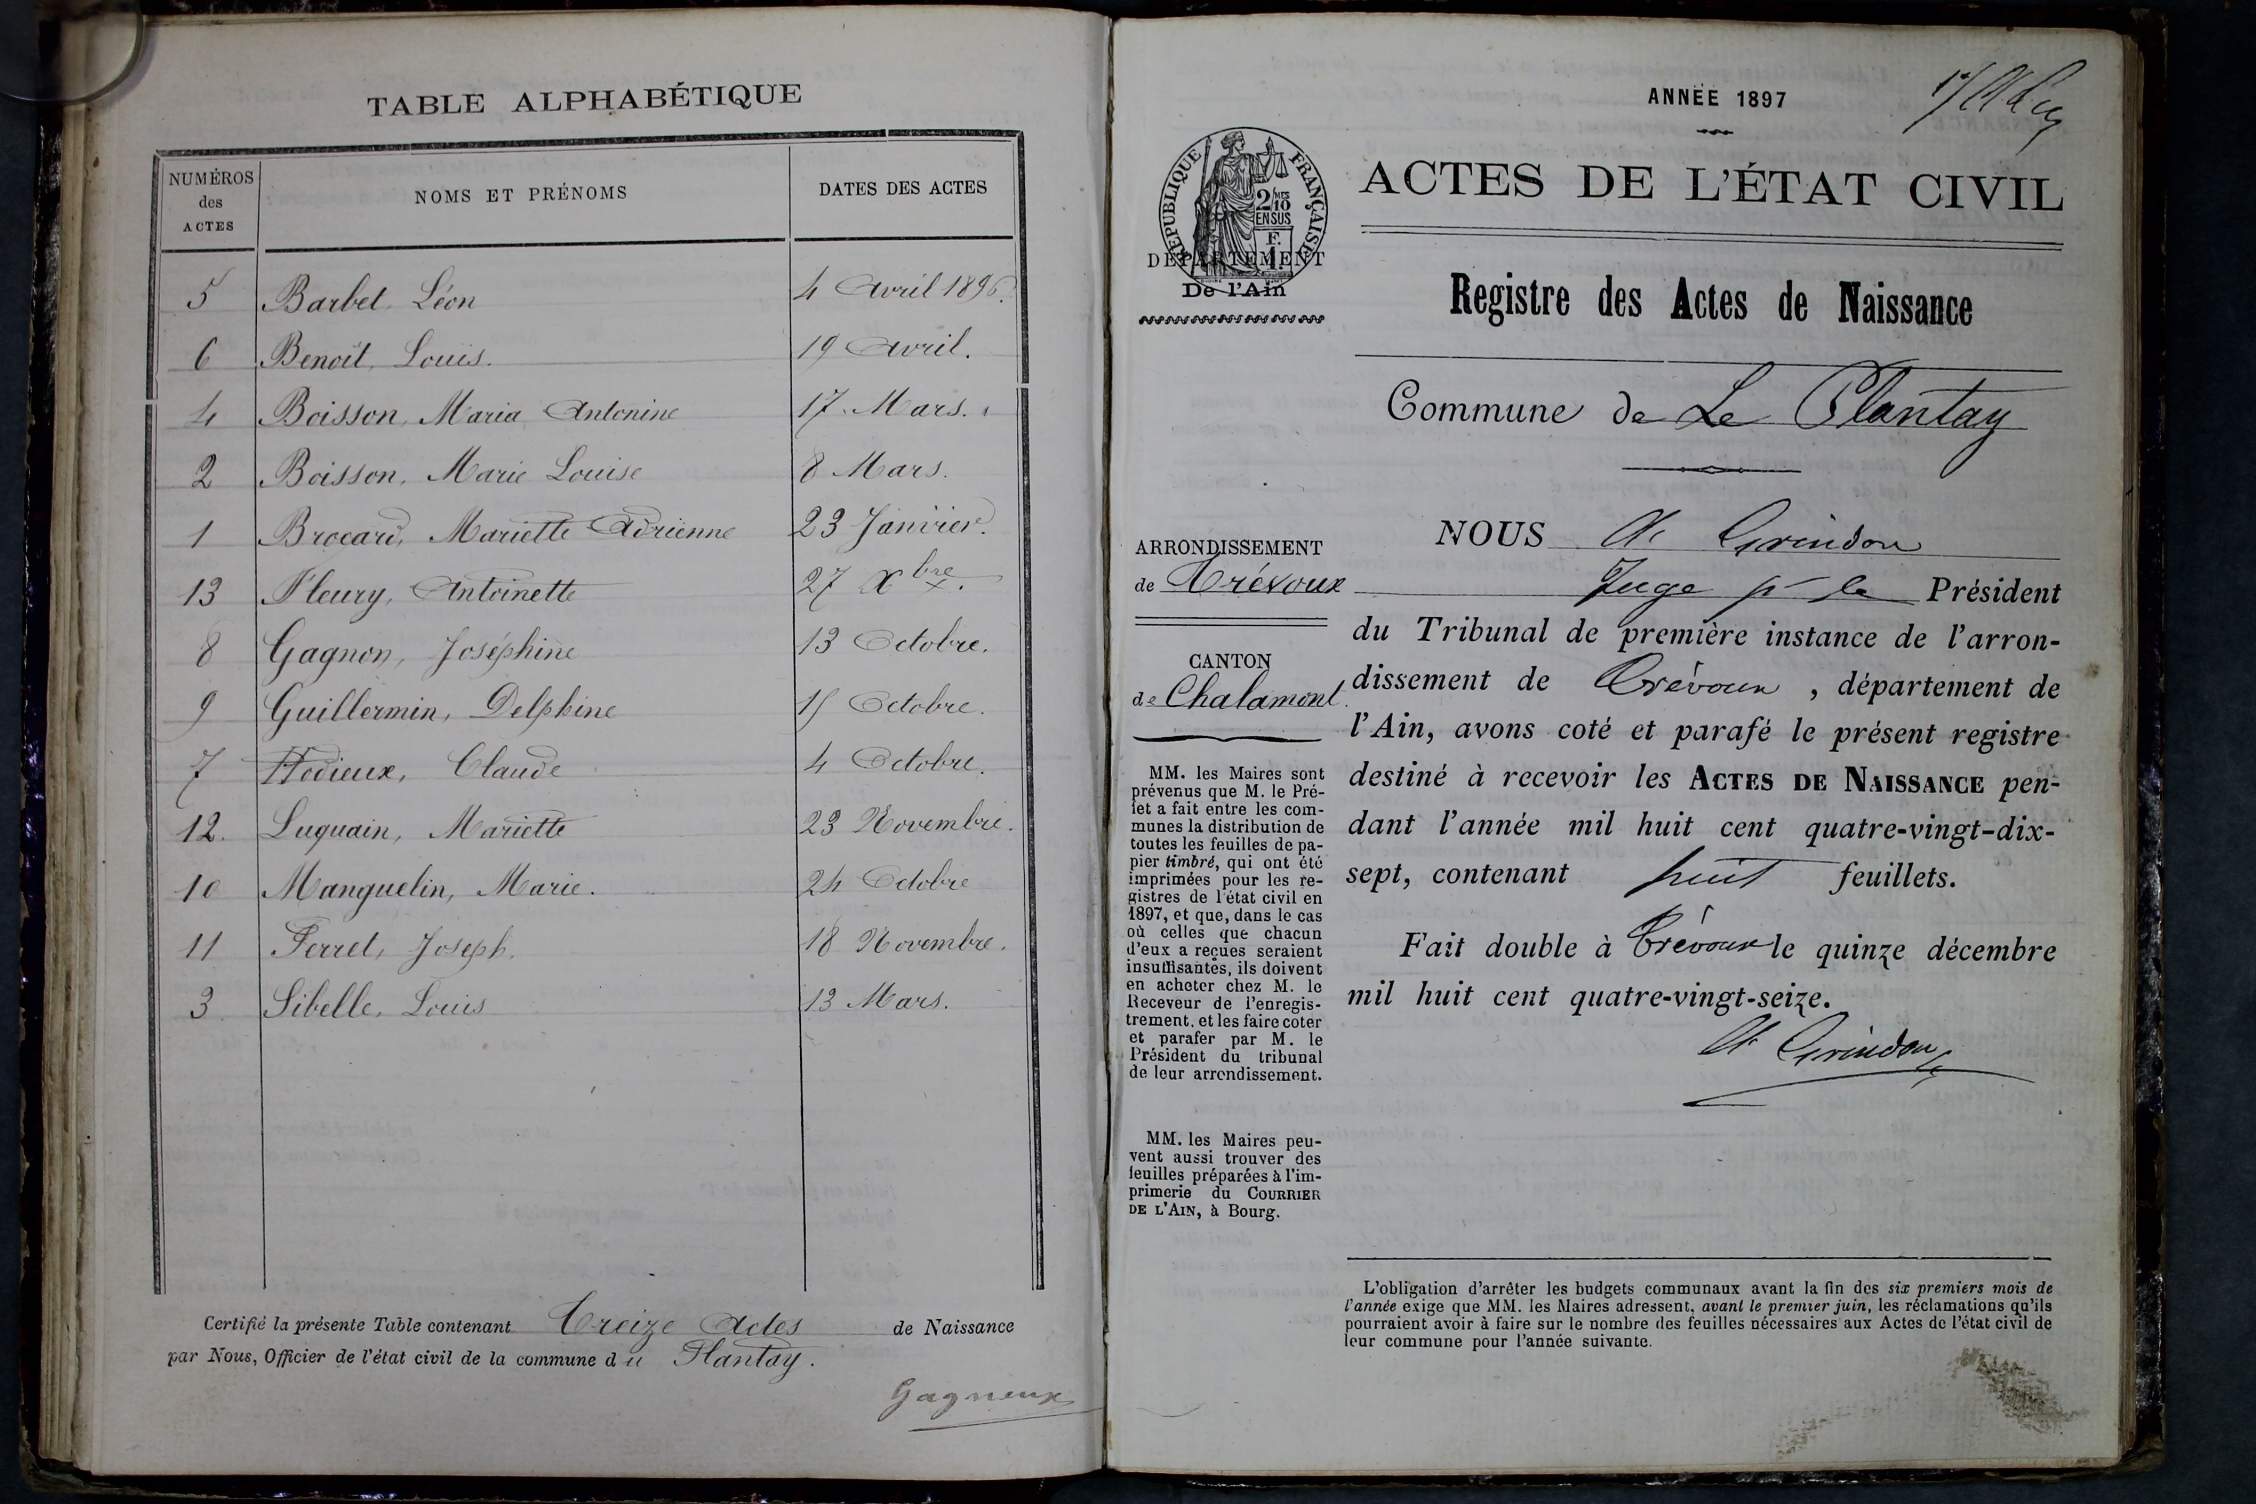 TABLE ALPHABÉTIQUE
NUMÉROS des ACTES NOMS ET PRÉNOMS DATES DES ACTES
5 Barbet, Léon 4 Avril 1896.
6 Benoît, Louis. 19 Avril.
4 Boisson, Maria Antonine 17 Mars.
2 Boisson, Marie Louise 8 Mars.
1 Brocard, Mariette Adrienne 23 Janvier.
13 Fleury, Antoinette 27 Xbre.
8 Gagnon, Joséphine 13 Octobre.
9 Guillermin, Delphine 15 Octobre.
7 Hedieux, Claude 4 Octobre.
12. Luquain, Mariette 23 Novembre.
10 Manguelin, Marie. 24 Octobre
11 Perret, Joseph. 18 Novembre.
3 Sibelle, Louis 13 Mars.
Certifié la présente Table contenant Treize Actes de Naissance
par Nous, Officier de l'état civil de la commune du Plantay.
Gagneux
ANNÉE 1897
ACTES DE L'ÉTAT CIVIL
RÉPUBLIQUE FRANÇAISE
2/10 MES
EN SUS
F.
1
DÉPARTEMENT
De l'Ain
Registre des Actes de Naissance
Commune de Le Plantay
ARRONDISSEMENT
de Trévoux
CANTON
de Chalamont.
MM. les Maires sont
prévenus que M. le Pré-
fet a fait entre les com-
munes la distribution de
toutes les feuilles de pa-
pier timbré, qui ont été
imprimées pour les re-
gistres de l'état civil en
1897, et que, dans le cas
où celles que chacun
d'eux a reçues seraient
insuffisantes, ils doivent
en acheter chez M. le
Receveur de l'enregis-
trement, et les faire coter
et parafer par M. le
Président du tribunal
de leur arrondissement.
MM. les Maires peu-
vent aussi trouver des
feuilles préparées à l'im-
primerie du COURRIER
DE L'AIN, à Bourg.
NOUS A. Grindon
Juge pr le Président
du Tribunal de première instance de l'arron-
dissement de Trévoux, département de
l'Ain, avons coté et parafé le présent registre
destiné à recevoir les ACTES DE NAISSANCE pen-
dant l'année mil huit cent quatre-vingt-dix-
sept, contenant huit feuillets.
Fait double à Trévoux le quinze décembre
mil huit cent quatre-vingt-seize.
A. Grindon
L'obligation d'arrêter les budgets communaux avant la fin des six premiers mois de
l'année exige que MM. les Maires adressent, avant le premier juin, les réclamations qu'ils
pourraient avoir à faire sur le nombre des feuilles nécessaires aux Actes de l'état civil de
leur commune pour l'année suivante.